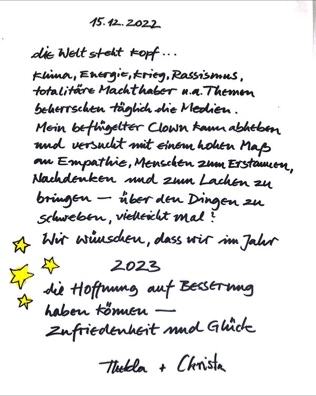 15.12.2022
die Welt steht Kopf...
Klima, Energie, Krieg, Rassismus,
totalitäre Machthaber u.a. Themen
beherrschen täglich die Medien.
Mein beflügelter Clown kann abheben
und versucht mit einem hohen Maß
an Empathie, Menschen zum Erstaunen,
Nachdenken und zum Lachen zu
bringen — über den Dingen zu
schweben, vielleicht mal!
Wir wünschen, dass wir im Jahr
2023
die Hoffnung auf Besserung
haben können —
Zufriedenheit und Glück
Thekla + Christa